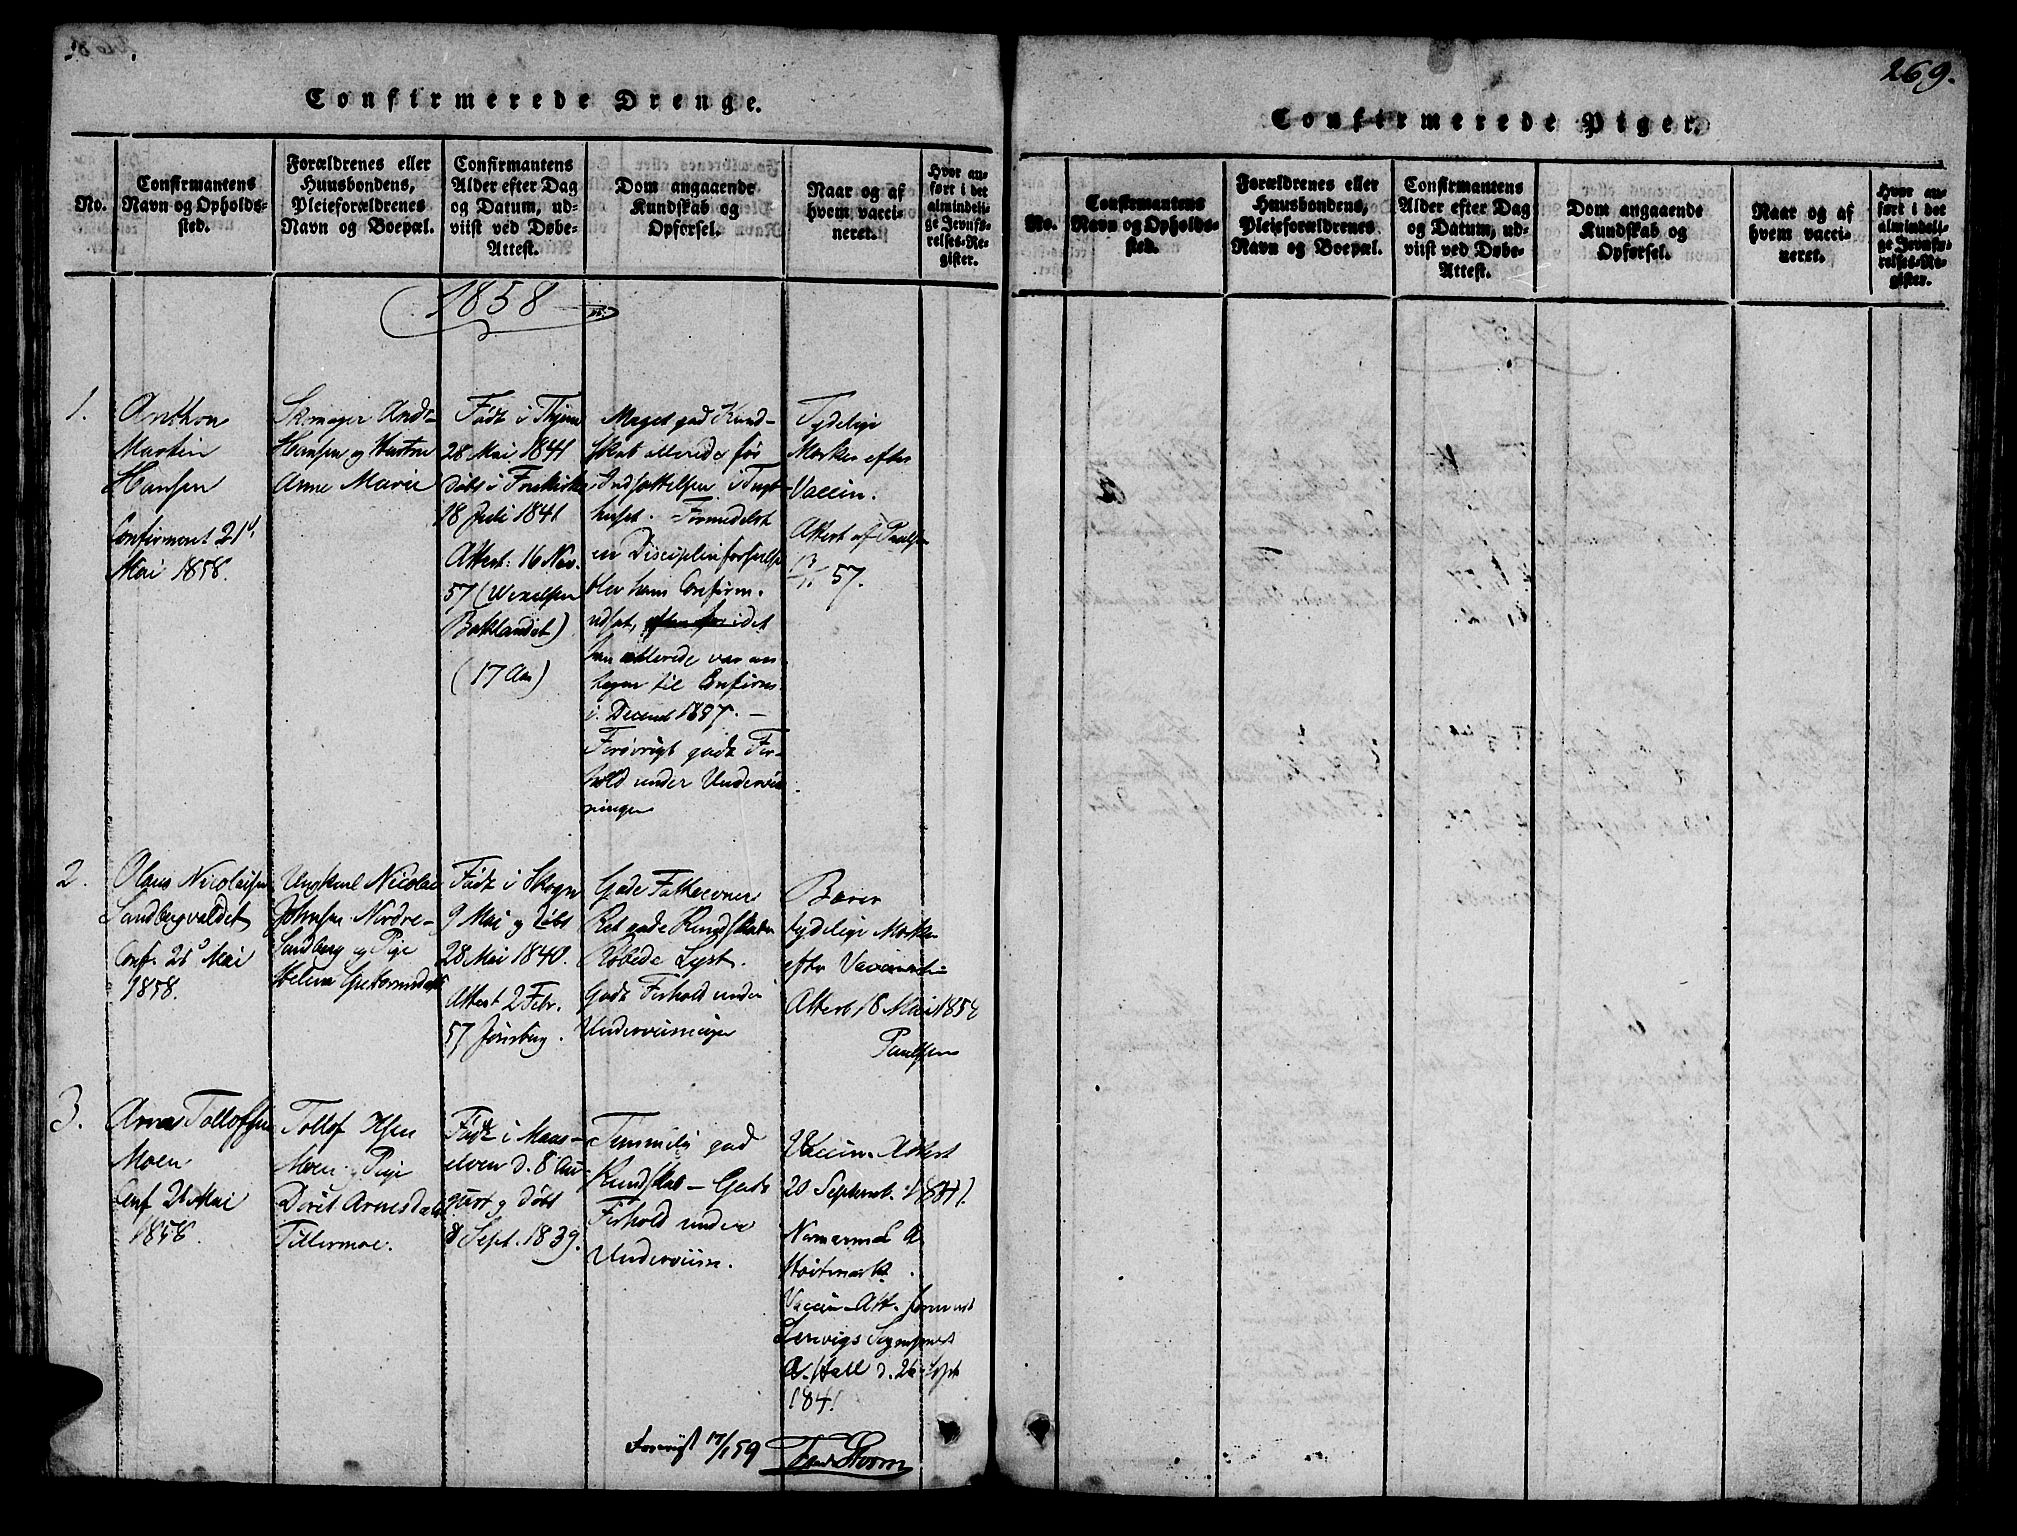 269.
Confirmerede Drenge.
No.
Confirmantens
Navn og Opholds-
sted.
Forældrenes eller
Huusbondens,
Pleieforældrenes
Navn og Boepæl.
Confirmantens
Alder efter Dag
og Datum, ud-
viist ved Døbe-
Attest.
Dom angaaende
Kundskab og
Opførsel.
Naar og af
hvem vacci-
neret.
Hvor an-
ført i det
almindeli-
ge Jevnfø-
relses-Re-
gister.
1858
1.
Anthon
Martin
Hansen
Confirmeret 21
Mai 1858.
Skomager Ands
Hansen og Hustru
Anne Marie
Født i Thjem
28 Mai 1841
døbt i Fruekirke
18 Juli 1841
Attest: 16 Nov.
57 (Wexelsen
Baklandet)
(17 Aar)
Meget god Kund-
skab allerede før
Indsættelsen i Tugt-
huset. Formedelst
en Disciplinforseelse
blev hans Confirm.
udsat, idet
han allerede var an-
tagen til Confirm.
i Decemb 1857. -
Forøvrigt godt For-
hold under Underviis-
ningen
Tydelige
Mærker efter
Vaccin.
Attest af Paulsen
57.
2.
Olaus Nicolaisen
Sandbergvaldet
Conf. 21 Mai
1858.
Ungkarl Nicolai
Johnsen Nordre-
Sandberg og Pige
Helena
Født i Skogn
9 Mai og døbt
28 Mai 1840.
Attest 2 Febr.
57 Jonsberg.
Gode Fatteevner
Ret gode Kundskaber
Lyst.
Godt Forhold under
Underviisningen
Bærer
tydelige Mærker
efter
Attest 18 Mai 1858
Paulsen
3.
Arnt Tollofsen
Moen
Conf. 21 Mai
1858.
Tollof Olsen
Moen. Pige
Doret Arnesdatt
Tillermoe.
Født i Mans-
elven d. 8 Au-
gust og døbt
8 Sept. 1839.
Temmelig god
Kundskab - Godt
Forhold under
Underviisn.
Vaccin. Attest
20 Septemb. 1841.
A.
Høitmark.
Vaccin-Att. fornævnt
Lensvigs
A. Hall d. 20 Sept
1841
Foreviist 17/1 59
Storm
Confirmerede Piger.
No.
Confirmantens
Navn og Opholds-
sted.
Forældrenes eller
Huusbondens,
Pleieforældrenes
Navn og Boepæl.
Confirmantens
Alder efter Dag
og Datum, ud-
viist ved Døbe-
Attest.
Dom angaaende
Kundskab og
Opførsel.
Naar og af
hvem vacci-
neret.
Hvor an-
ført i det
almindeli-
ge Jevnfø-
relses-Re-
gister.